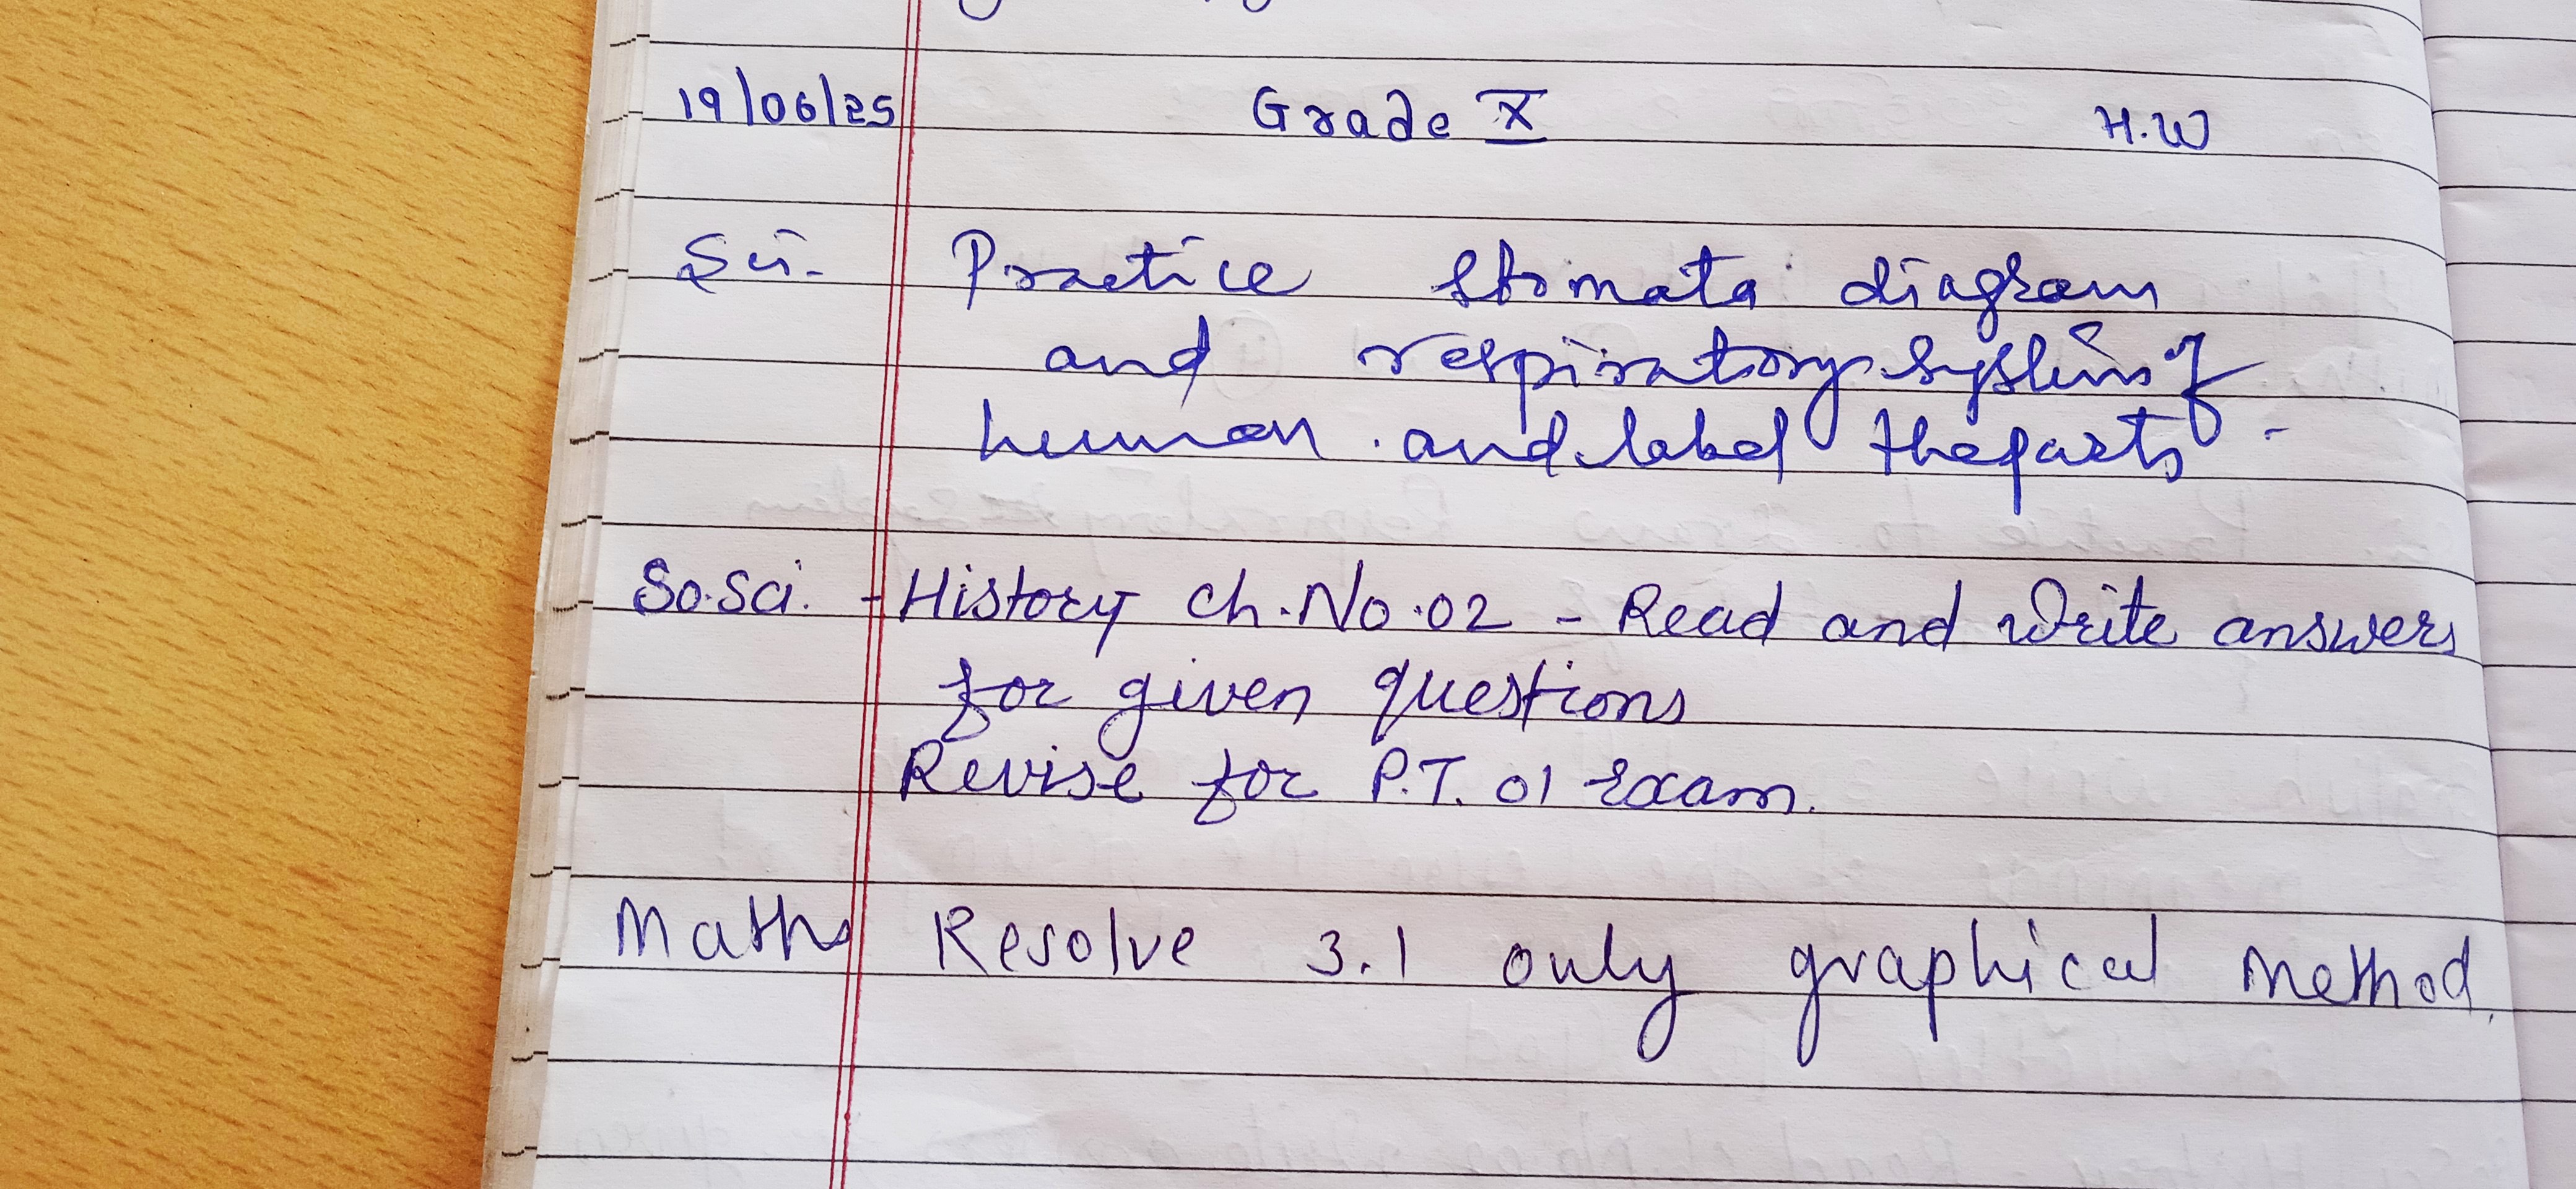 19/06/25 Grade X H.W
Sci. Practice stomata diagram
and respiratory system of
human. and label the parts.
So.Sci. - History Ch.No.02 - Read and write answers
for given questions
Revise for P.T. 01 Exam.
Maths Resolve 3.1 only graphical method.